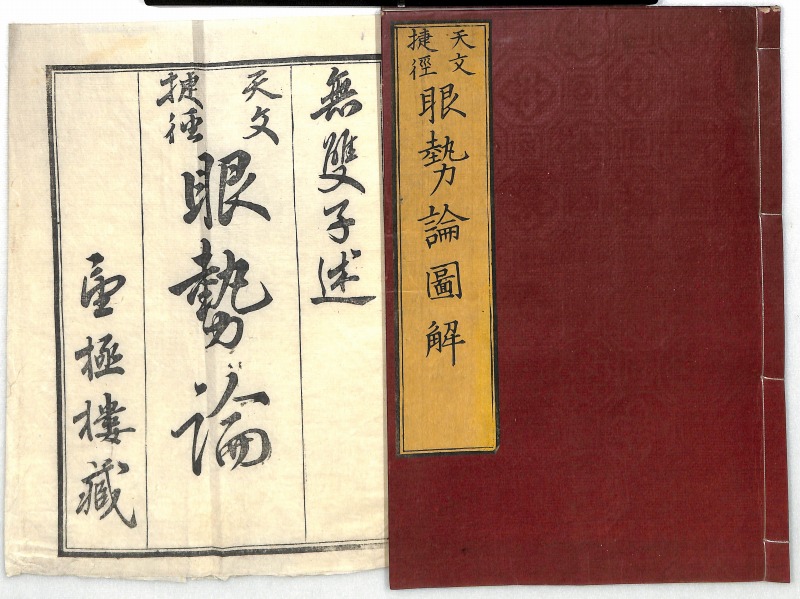 天文
捷徑
眼勢論圖解
無雙子述
天文
捷徑
眼勢論
極樓藏